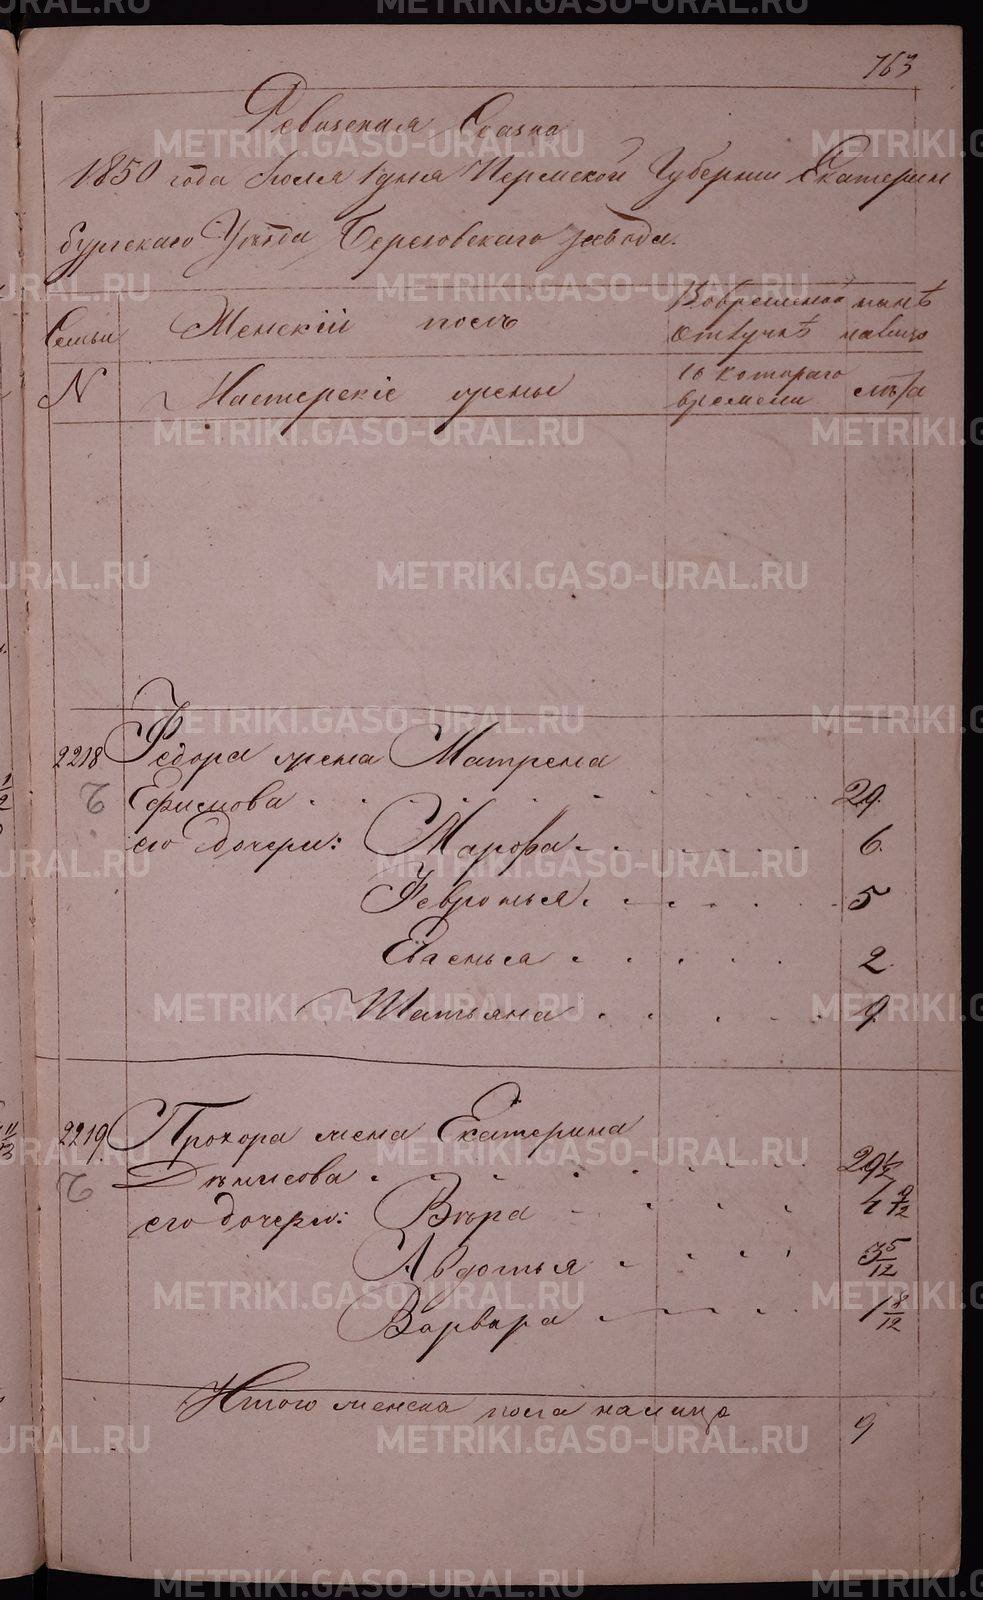 763
Ревизская Сказка
1850 года Июля 1 дня Пермской Губернии Екатерин
бургскаго Уѣзда Березовскаго завода.
Семьи Женскій полъ Вовременной отлучкѣ нынѣ налицо
N Мастерскіе жены съ котораго времени лѣта
2218 Федора жена Матрена
Ефимова 29.
его дочери: Марфа 6.
Февронья 5
Евдокья 2.
Татьяна 9
2219 Прохора жена Екатерина
Денисова 29 1/2
его дочери: Вѣра 4 9/12
Авдотья 3 5/12
Варвара 1 8/12
Итого женска пола налицо 9
METRIKI.GASO-URAL.RU